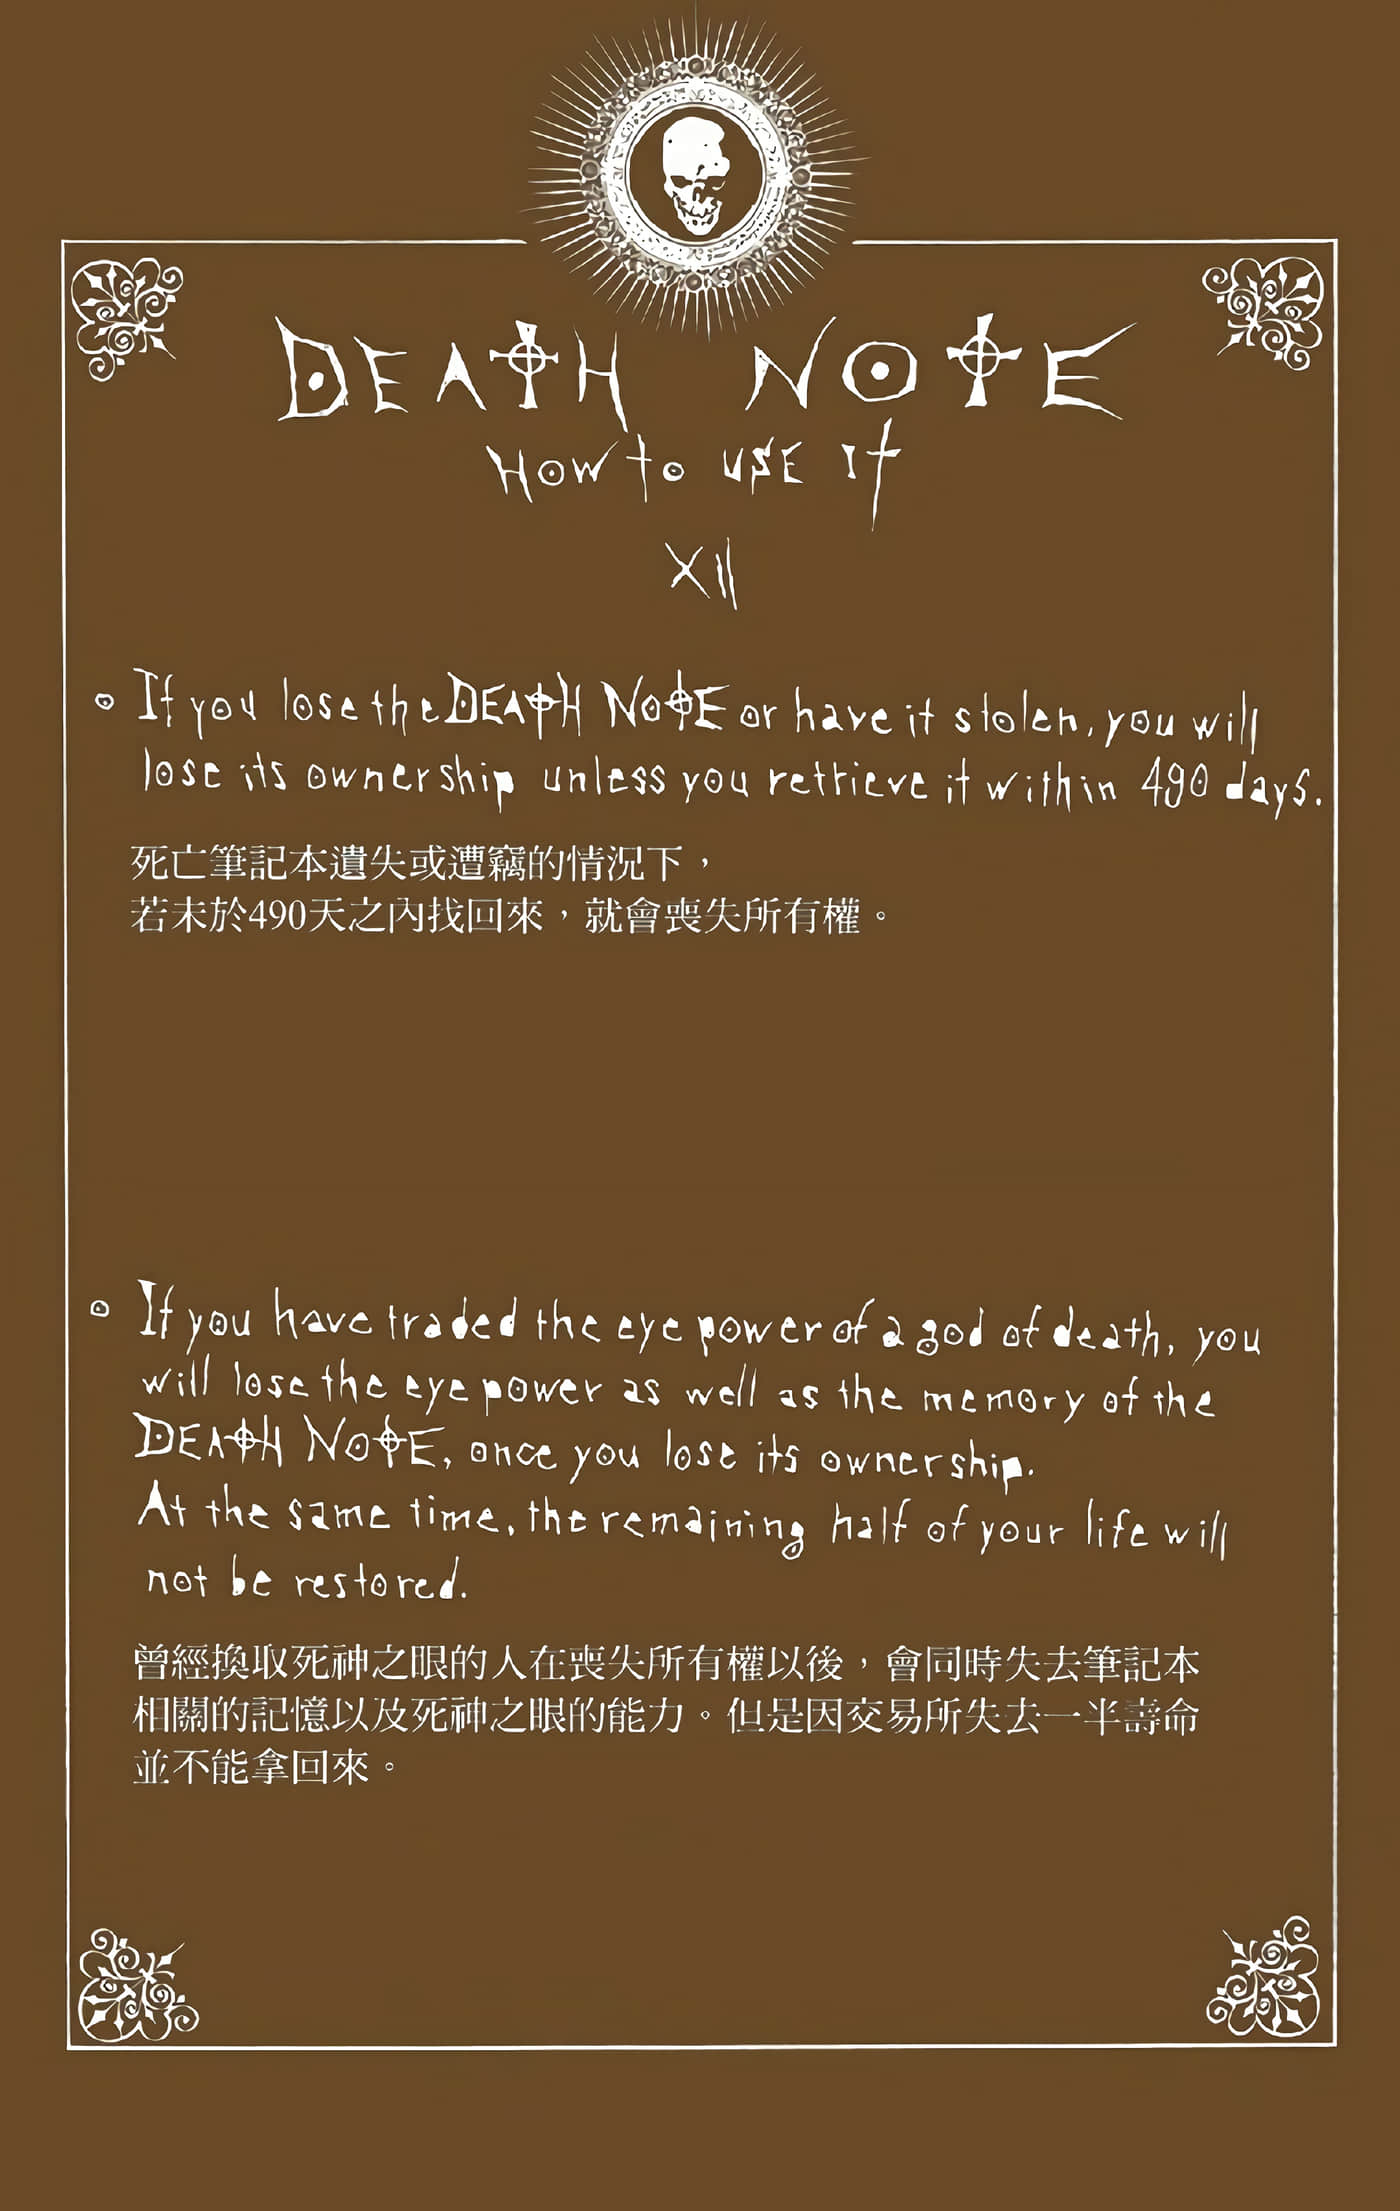 DEATH NOTE
HOW to USE It
XII
• If you lose the DEATH NOTE or have it stolen, you will
lose its ownership unless you retrieve it within 490 days.
死亡筆記本遺失或遭竊的情況下，
若未於490天之內找回來，就會喪失所有權。
• If you have traded the eye power of a god of death, you
will lose the eye power as well as the memory of the
DEATH NOTE, once you lose its ownership.
At the same time, the remaining half of your life will
not be restored.
曾經換取死神之眼的人在喪失所有權以後，會同時失去筆記本
相關的記憶以及死神之眼的能力。但是因交易所失去一半壽命
並不能拿回來。